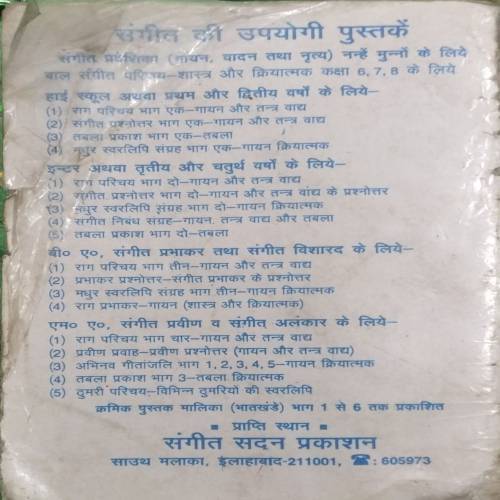 संगीत की उपयोगी पुस्तकें
संगीत प्रवेशिका (गायन, वादन तथा नृत्य) नन्हें मुन्नों के लिये
बाल संगीत परिचय–शास्त्र और क्रियात्मक कक्षा 6, 7, 8 के लिये
हाई स्कूल अथवा प्रथम और द्वितीय वर्षो के लिये–
(1) राग परिचय भाग एक–गायन और तन्त्र वाद्य
(2) संगीत प्रश्नोत्तर भाग एक–गायन और तन्त्र वाद्य
(3) तबला प्रकाश भाग एक–तबला
(4) मधुर स्वरलिपि संग्रह भाग एक–गायन क्रियात्मक
इन्टर अथवा तृतीय और चतुर्थ वर्षो के लिये–
(1) राग परिचय भाग दो–गायन और तन्त्र वाद्य
(2) संगीत प्रश्नोत्तर भाग दो–गायन और तन्त्र वाद्य के प्रश्नोत्तर
(3) मधुर स्वरलिपि संग्रह भाग दो–गायन क्रियात्मक
(4) संगीत निबंध संग्रह–गायन, तन्त्र वाद्य और तबला
(5) तबला प्रकाश भाग दो–तबला
बी० ए०, संगीत प्रभाकर तथा संगीत विशारद के लिये–
(1) राग परिचय भाग तीन–गायन और तन्त्र वाद्य
(2) प्रभाकर प्रश्नोत्तर–संगीत प्रभाकर के प्रश्नोत्तर
(3) मधुर स्वरलिपि संग्रह भाग तीन–गायन क्रियात्मक
(4) राग प्रभाकर–गायन (शास्त्र और क्रियात्मक)
एम० ए०, संगीत प्रवीण व संगीत अलंकार के लिये–
(1) राग परिचय भाग चार–गायन और तन्त्र वाद्य
(2) प्रवीण प्रवाह–प्रवीण प्रश्नोत्तर (गायन और तन्त्र वाद्य)
(3) अभिनव गीतांजलि भाग 1, 2, 3, 4, 5–गायन क्रियात्मक
(4) तबला प्रकाश भाग 3–तबला क्रियात्मक
(5) ठुमरी परिचय–विभिन्न ठुमरियों की स्वरलिपि
क्रमिक पुस्तक मालिका (भातखंडे) भाग 1 से 6 तक प्रकाशित
■ प्राप्ति स्थान ■
संगीत सदन प्रकाशन
साउथ मलाका, इलाहाबाद-211001, ☎ : 605973